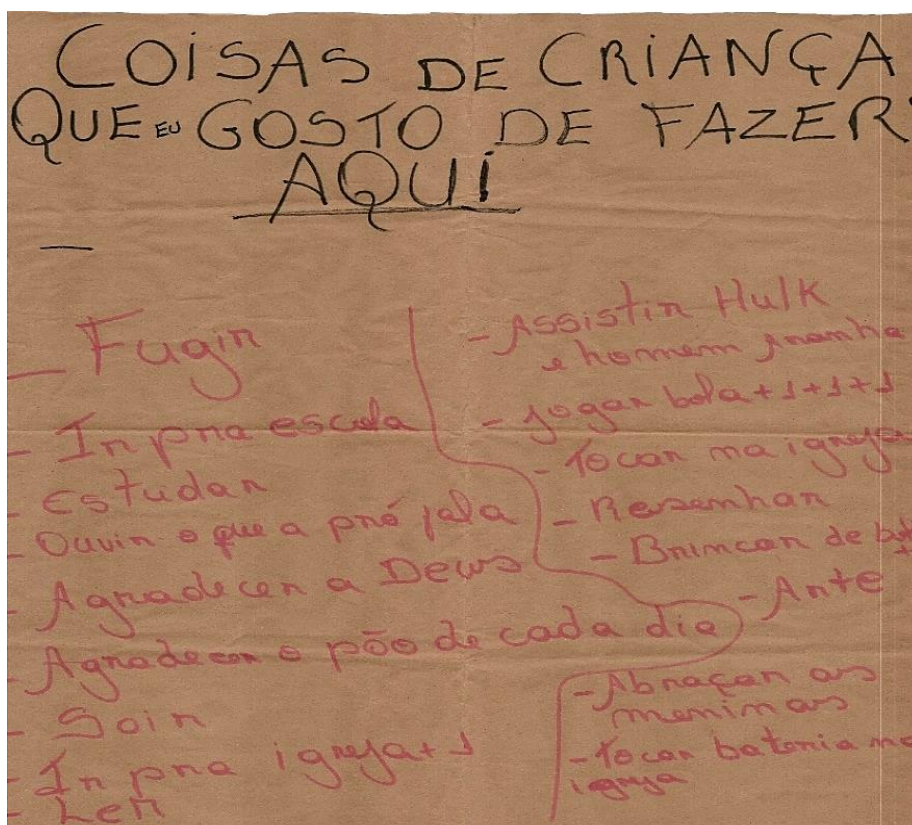 COISAS DE CRIANÇA
QUE EU GOSTO DE FAZER
AQUI
- Fugir
- Ir pra escola
- Estudar
- Ouvir o que a pró fala
- Agradecer a Deus
- Agradecer o pão de cada dia
- Sair
- Ir pra igreja +1
- Ler
- Assistir Hulk
e homem aranha
- Jogar bola +1+1+1
- Tocar na igreja
- Resenhar
- Brincar de
- Arte
- Abraçar as
meninas
- Tocar bateria na
igreja